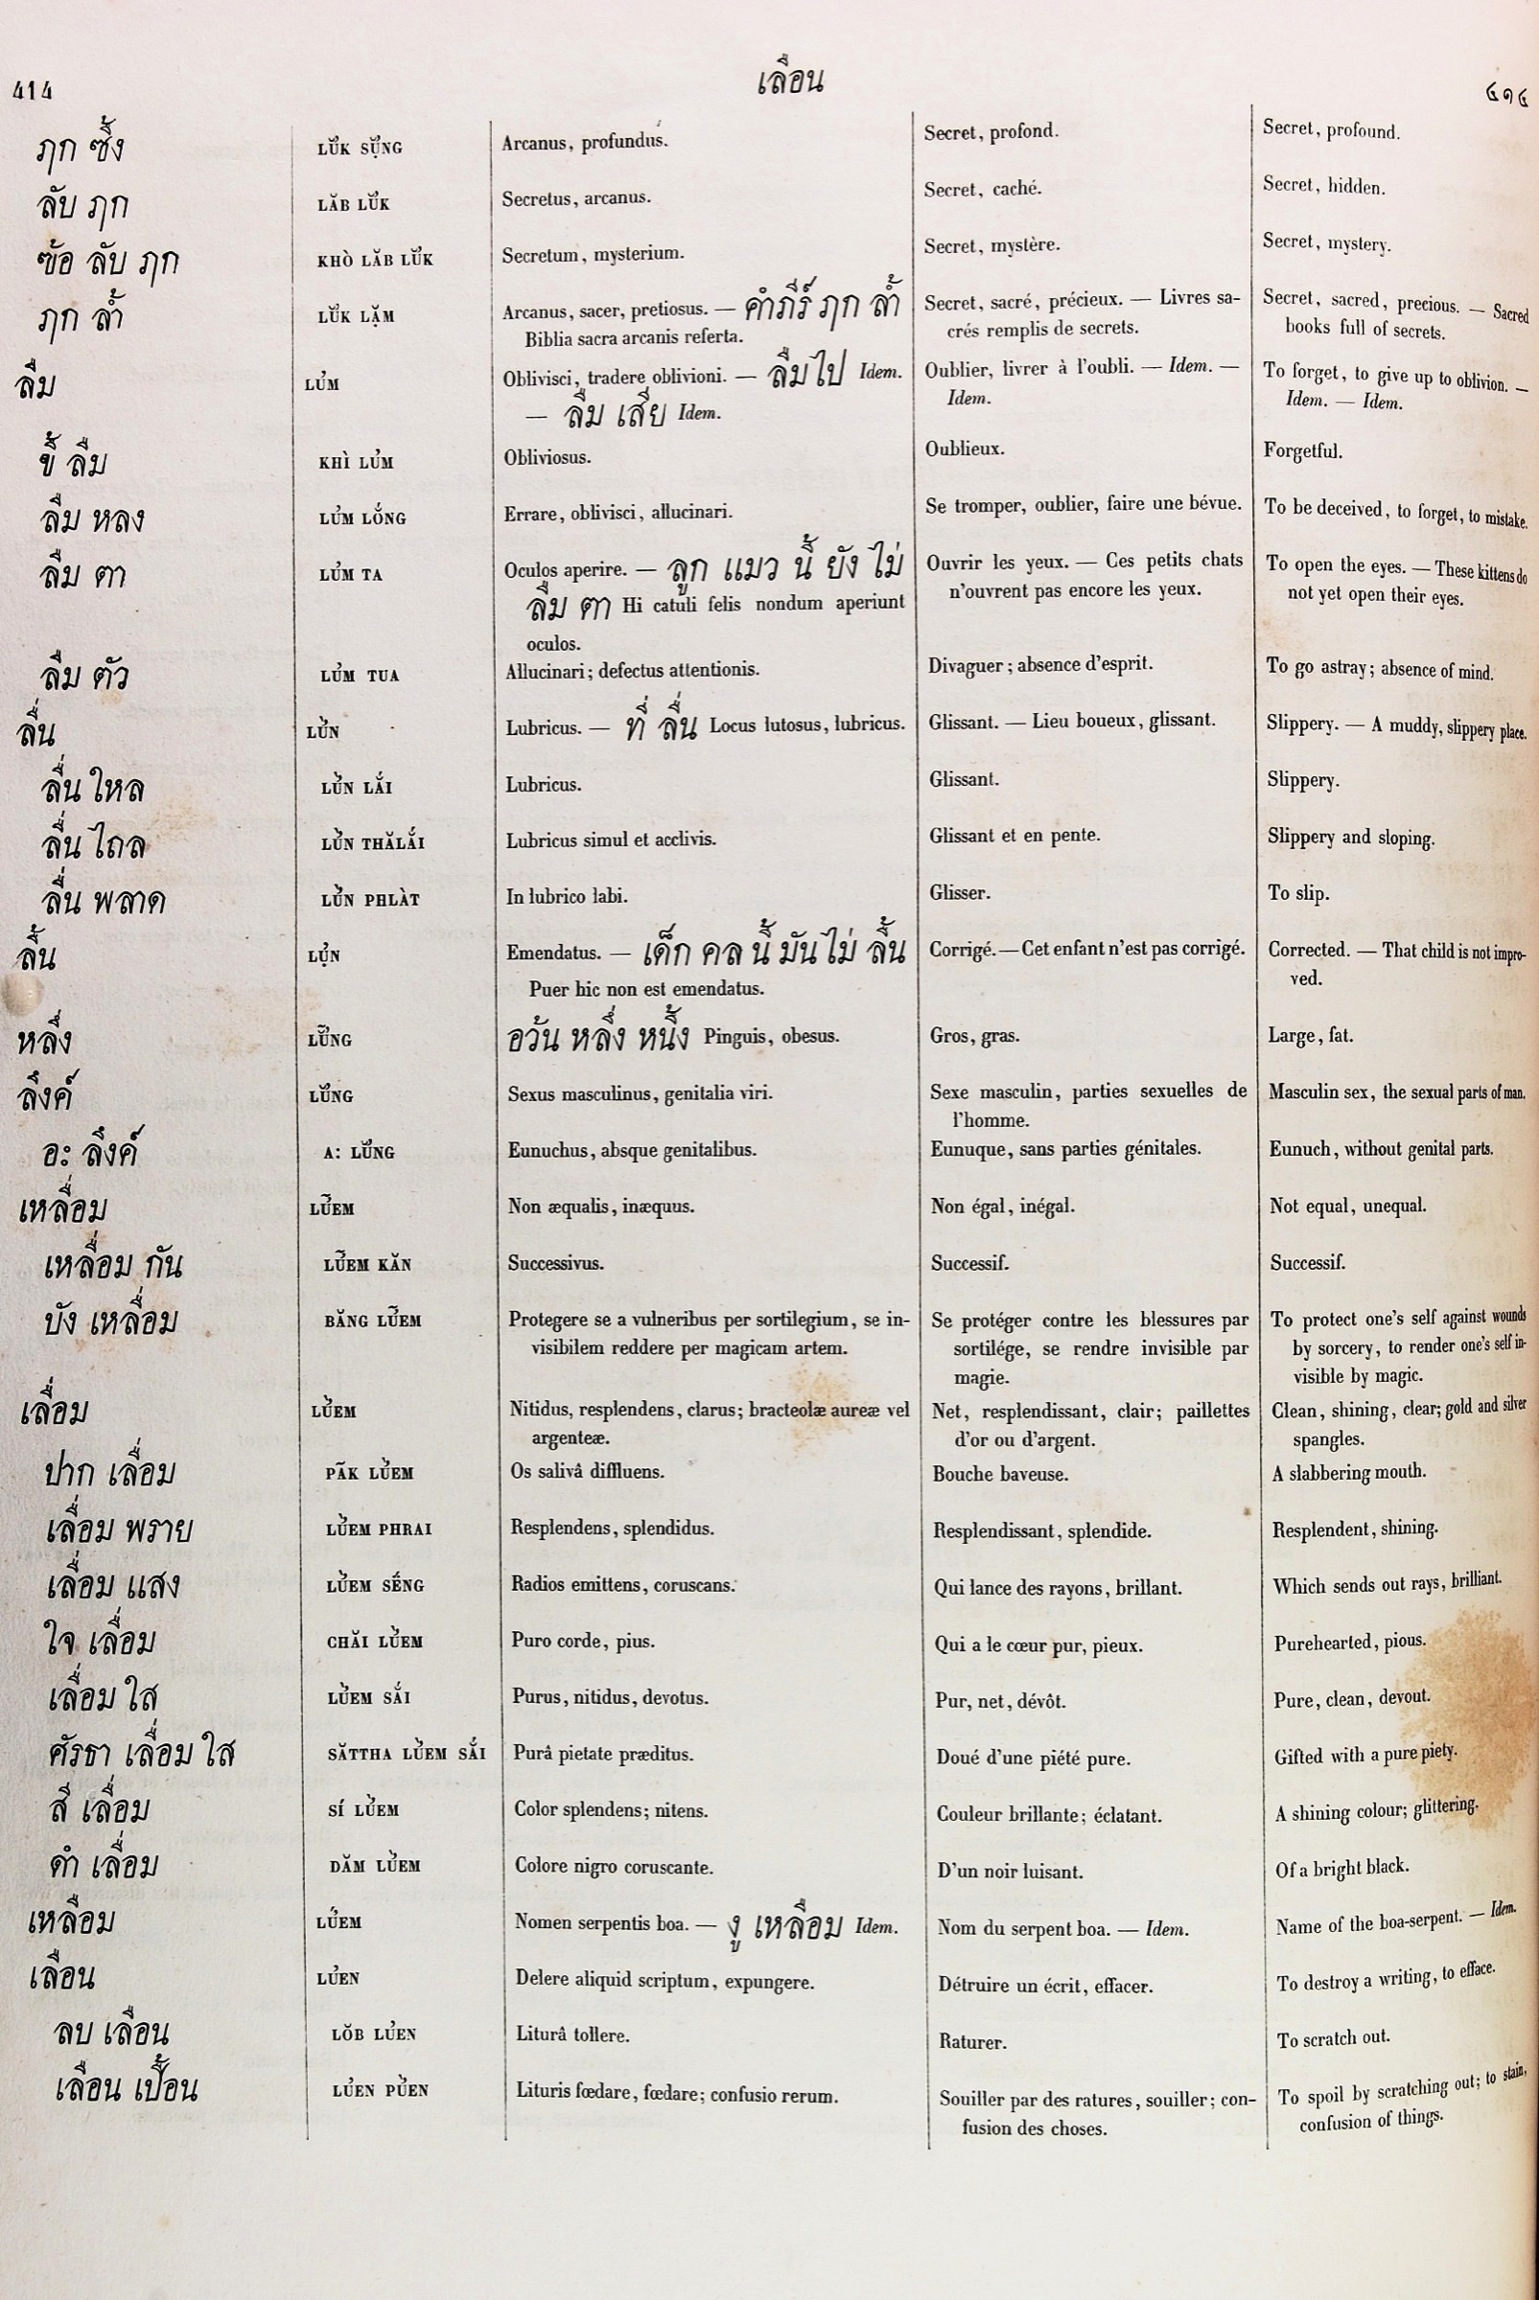 414 เลือน ๔๑๔
ฦก ซึ้ง LŬ̉K SỤ̆̉NG Arcanus, profundus. Secret, profond. Secret, profound.
ลับ ฦก LĂB LŬ̉K Secretus, arcanus. Secret, caché. Secret, hidden.
ข้อ ลับ ฦก KHÒ LĂB LŬ̉K Secretum, mysterium. Secret, mystère. Secret, mystery.
ฦก ล้ำ LŬ̉K LẶM Arcanus, sacer, pretiosus. — คำภีร์ ฦก ล้ำ Secret, sacré, précieux. — Livres sa- Secret, sacred, precious. — Sacred
Biblia sacra arcanis referta. crés remplis de secrets. books full of secrets.
ลืม LỦM Oblivisci, tradere oblivioni. — ลืมไป Idem. Oublier, livrer à l'oubli. — Idem. — To forget, to give up to oblivion. —
— ลืม เสีย Idem. Idem. Idem. — Idem.
ขี้ ลืม KHÌ LỦM Obliviosus. Oublieux. Forgetful.
ลืม หลง LỦM LỐNG Errare, oblivisci, allucinari. Se tromper, oublier, faire une bévue. To be deceived, to forget, to mistake.
ลืม ตา LỦM TA Oculos aperire. — ลูก แมว นี้ ยัง ไม่ Ouvrir les yeux. — Ces petits chats To open the eyes. — These kittens do
ลืม ตา Hi catuli felis nondum aperiunt n'ouvrent pas encore les yeux. not yet open their eyes.
oculos.
ลืม ตัว LỦM TUA Allucinari; defectus attentionis. Divaguer; absence d'esprit. To go astray; absence of mind.
ลื่น LỦ̀N Lubricus. — ที่ ลื่น Locus lutosus, lubricus. Glissant. — Lieu boueux, glissant. Slippery. — A muddy, slippery place.
ลื่น ใหล LỦ̀N LẮI Lubricus. Glissant. Slippery.
ลื่น ไถล LỦ̀N THĂLẮI Lubricus simul et acclivis. Glissant et en pente. Slippery and sloping.
ลื่น พลาด LỦ̀N PHLÀT In lubrico labi. Glisser. To slip.
ลื้น LỤ̉N Emendatus. — เด็ก คล นี้ มัน ไม่ ลื้น Corrigé. — Cet enfant n'est pas corrigé. Corrected. — That child is not impro-
Puer hic non est emendatus. ved.
หลึ่ง LŬ̉NG อว้น หลึ่ง หนึ้ง Pinguis, obesus. Gros, gras. Large, fat.
ลึงค์ LŬ̉NG Sexus masculinus, genitalia viri. Sexe masculin, parties sexuelles de Masculin sex, the sexual parts of man.
l'homme.
อะ ลึงค์ A: LŬ̉NG Eunuchus, absque genitalibus. Eunuque, sans parties génitales. Eunuch, without genital parts.
เหลื่อม LỦ̃EM Non æqualis, inæquus. Non égal, inégal. Not equal, unequal.
เหลื่อม กัน LỦ̃EM KĂN Successivus. Successif. Successif.
บัง เหลื่อม BĂNG LỦ̃EM Protegere se a vulneribus per sortilegium, se in- Se protéger contre les blessures par To protect one's self against wounds
visibilem reddere per magicam artem. sortilége, se rendre invisible par by sorcery, to render one's self in-
magie. visible by magic.
เลื่อม LỦ̀EM Nitidus, resplendens, clarus; bracteolæ aureæ vel Net, resplendissant, clair; paillettes Clean, shining, clear; gold and silver
argenteæ. d'or ou d'argent. spangles.
ปาก เลื่อม PÃK LỦ̀EM Os salivâ diffluens. Bouche baveuse. A slabbering mouth.
เลื่อม พราย LỦ̀EM PHRAI Resplendens, splendidus. Resplendissant, splendide. Resplendent, shining.
เลื่อม แสง LỦ̀EM SẾNG Radios emittens, coruscans. Qui lance des rayons, brillant. Which sends out rays, brilliant.
ใจ เลื่อม CHĂI LỦ̀EM Puro corde, pius. Qui a le cœur pur, pieux. Purehearted, pious.
เลื่อม ใส LỦ̀EM SẮI Purus, nitidus, devotus. Pur, net, dévôt. Pure, clean, devout.
ศัรธา เลื่อม ใส SĂTTHA LỦ̀EM SẮI Purâ pietate præditus. Doué d'une piété pure. Gifted with a pure piety.
สี เลื่อม SÍ LỦ̀EM Color splendens; nitens. Couleur brillante; éclatant. A shining colour; glittering.
ดำ เลื่อม DĂM LỦ̀EM Colore nigro coruscante. D'un noir luisant. Of a bright black.
เหลือม LỦ́EM Nomen serpentis boa. — งู เหลือม Idem. Nom du serpent boa. — Idem. Name of the boa-serpent. — Idem.
เลือน LỦEN Delere aliquid scriptum, expungere. Détruire un écrit, effacer. To destroy a writing, to efface.
ลบ เลือน LŎB LỦEN Liturâ tollere. Raturer. To scratch out.
เลือน เปื้อน LỦEN PỦ̀EN Lituris fœdare, fœdare; confusio rerum. Souiller par des ratures, souiller; con- To spoil by scratching out; to stain,
fusion des choses. confusion of things.